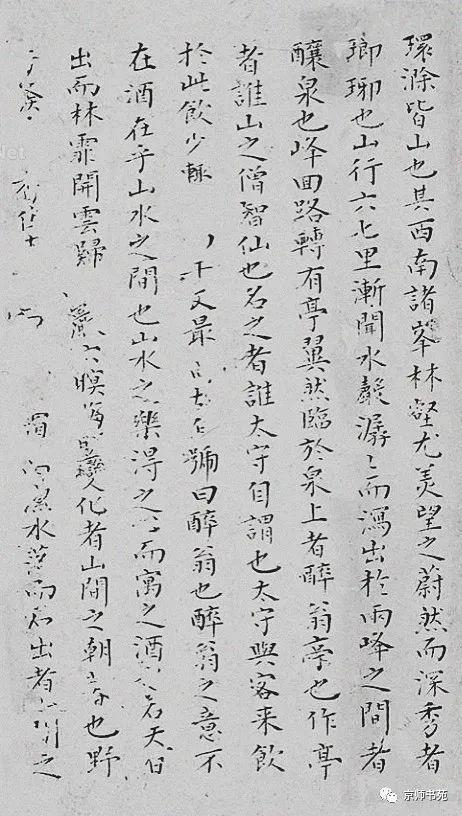 環滁皆山也其西南諸峯林壑尤美望之蔚然而深秀者
瑯琊也山行六七里漸聞水聲潺〻而瀉出於兩峰之間者
釀泉也峰回路轉有亭翼然臨於泉上者醉翁亭也作亭
者誰山之僧智仙也名之者誰太守自謂也太守與客来飲
於此飲少輒 年又最高 自號曰醉翁也醉翁之意不
在酒在乎山水之間也山水之樂得之心而寓之酒也若夫日
出而林霏開雲歸 穴暝晦 變化者山間之朝暮也野
發 水落而石出者 間之
京师书苑